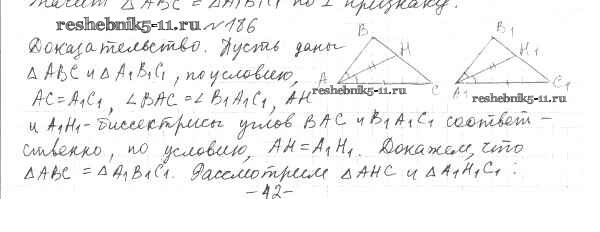 значит △ABC = △A1B1C1 по I признаку.
reshebnik5-11.ru № 186
Доказательство. Пусть даны
△ABC и △A1B1C1, по условию,
AC=A1C1, ∠BAC=∠B1A1C1, AH
и A1H1-биссектрисы углов BAC и B1A1C1 соответ-
ственно, по условию, AH=A1H1. Докажем, что
△ABC = △A1B1C1. Рассмотрим △AHC и △A1H1C1:
-42-
B
H
A
C
reshebnik5-11.ru
B1
H1
A1
C1
reshebnik5-11.ru